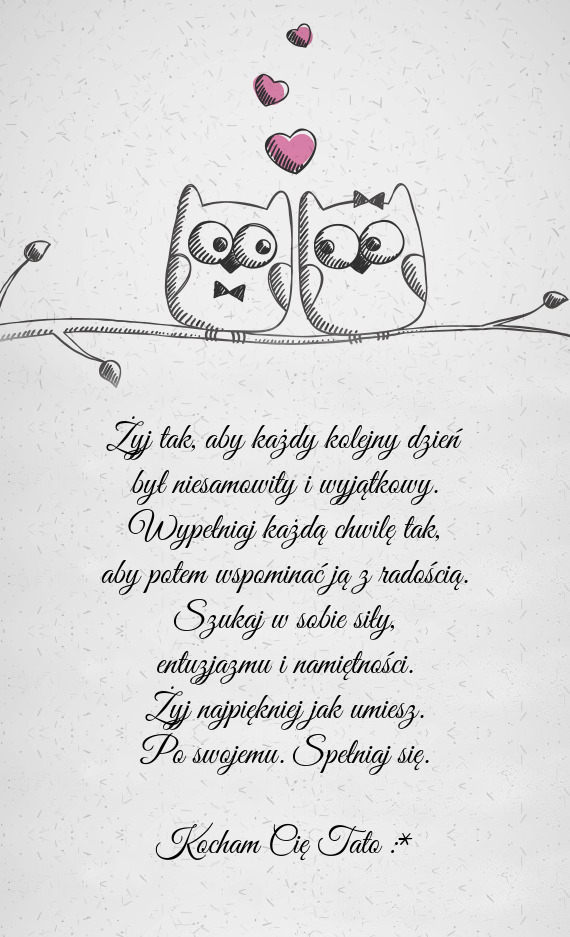 Żyj tak, aby każdy kolejny dzień
był niesamowity i wyjątkowy.
Wypełniaj każdą chwilę tak,
aby potem wspominać ją z radością.
Szukaj w sobie siły,
entuzjazmu i namiętności.
Żyj najpiękniej jak umiesz.
Po swojemu. Spełniaj się.
Kocham Cię Tato :*